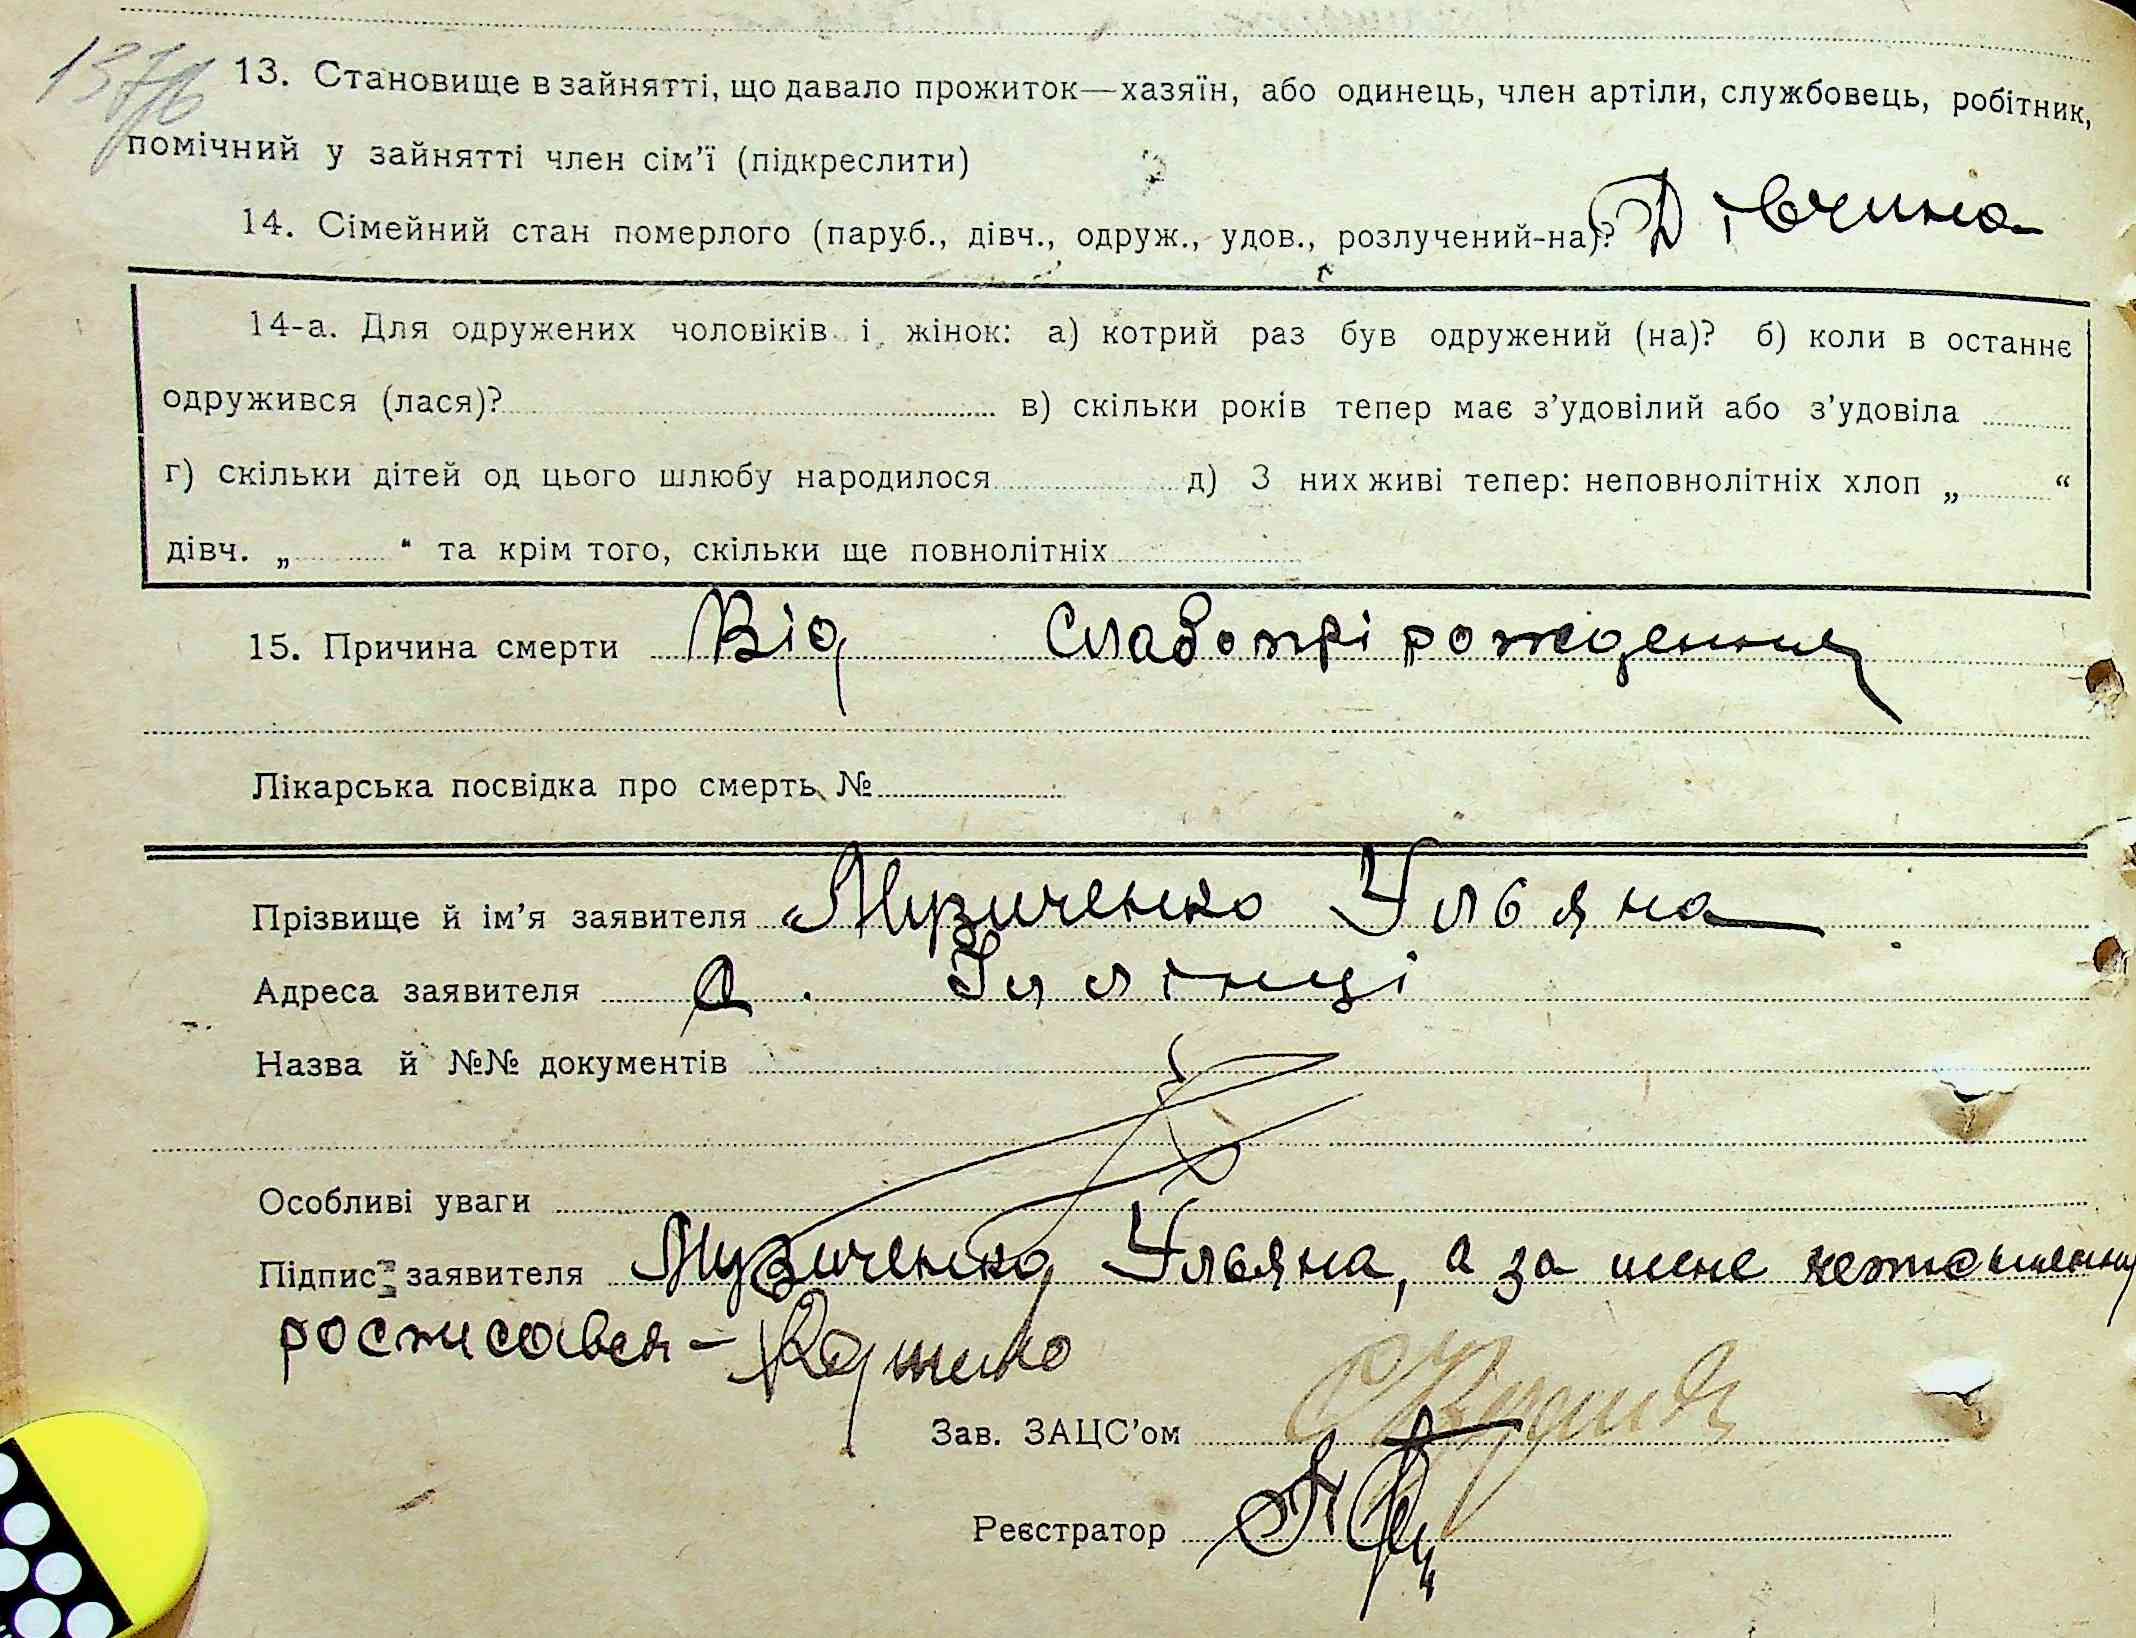 137/б
13. Становище в зайнятті, що давало прожиток—хазяїн, або одинець, член артіли, службовець, робітник,
помічний у зайнятті член сім'ї (підкреслити)
14. Сімейний стан померлого (паруб., дівч., одруж., удов., розлучений-на)? Дівчина
14-а. Для одружених чоловіків і жінок: а) котрий раз був одружений (на)? б) коли в останнє
одружився (лася)? в) скільки років тепер має з'удовілий або з'удовіла
г) скільки дітей од цього шлюбу народилося д) З них живі тепер: неповнолітніх хлоп „ “
дівч. „ “ та крім того, скільки ще повнолітніх
15. Причина смерти Від Слабопрірождения
Лікарська посвідка про смерть №
Прізвище й ім'я заявителя Музиченко Ульяна
Адреса заявителя с. Іллінці
Назва й №№ документів
Особливі уваги
Підпис заявителя Музиченко Ульяна, а за мене неписменну
росписався –
Зав. ЗАЦС'ом
Реєстратор